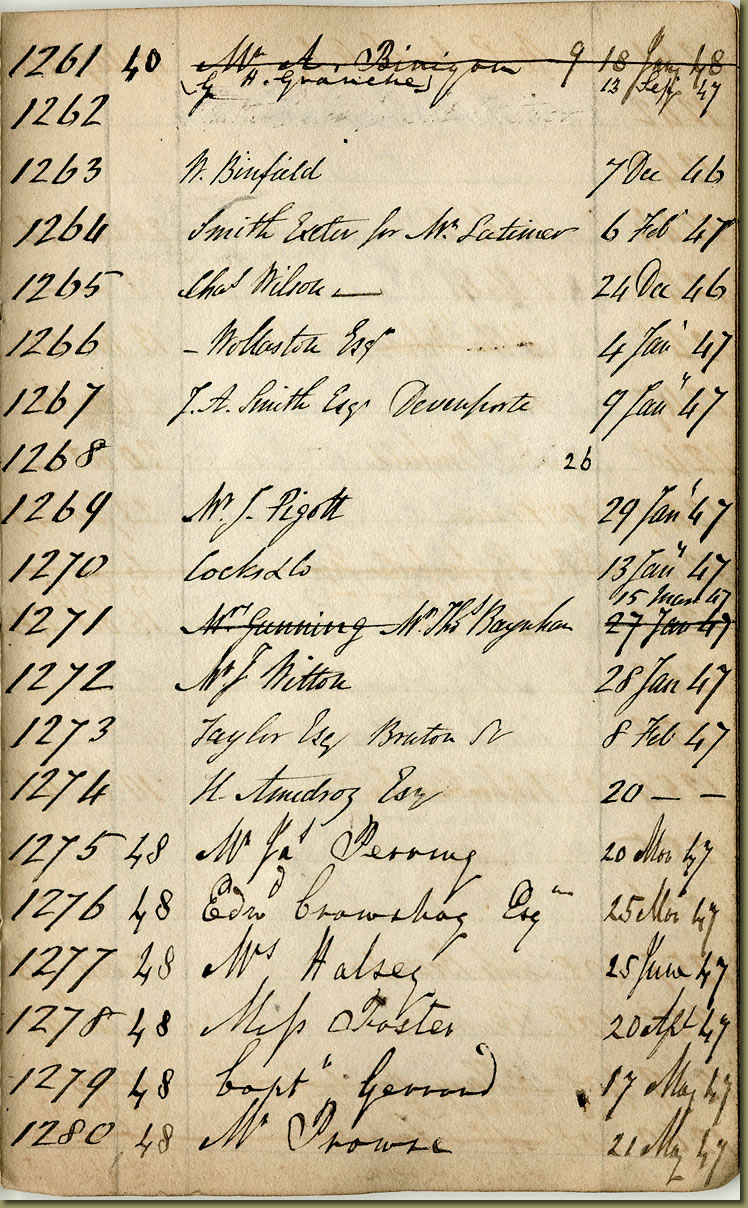 1261 40 Mr A. Binigon 9 18 Jany 48
(G H. Granches) 13 Sep 47
1262
1263 W. Binfield 7 Dec 46
1264 Smith Exeter for Mr. Latimer 6 Feb 47
1265 Chas Wilson — 24 Dec 46
1266 – Wollaston Esqr 4 Jan 47
1267 J. A. Smith Esqr Devenporte 9 Jany 47
1268 26
1269 Mr. J. Pigott 29 Jany 47
1270 Cocks & Co 13 Jany 47
15 Mar 47
1271 Mrs Gunning Mr Thos Baynham 27 Jan 47
1272 Mr J Witton 28 Jan 47
1273 Taylor Esq Bruton St 8 Feb 47
1274 H. Amedroz Esq 20 — —
1275 48 Mr Jas Perring 20 Mar 47
1276 48 Edwd Crawshay Esq 25 Mar 47
1277 48 Mrs Halsey 25 June 47
1278 48 Miss Foster 20 Apl 47
1279 48 Captn Gerrard 17 May 47
1280 48 Mr Prowse 21 May 47